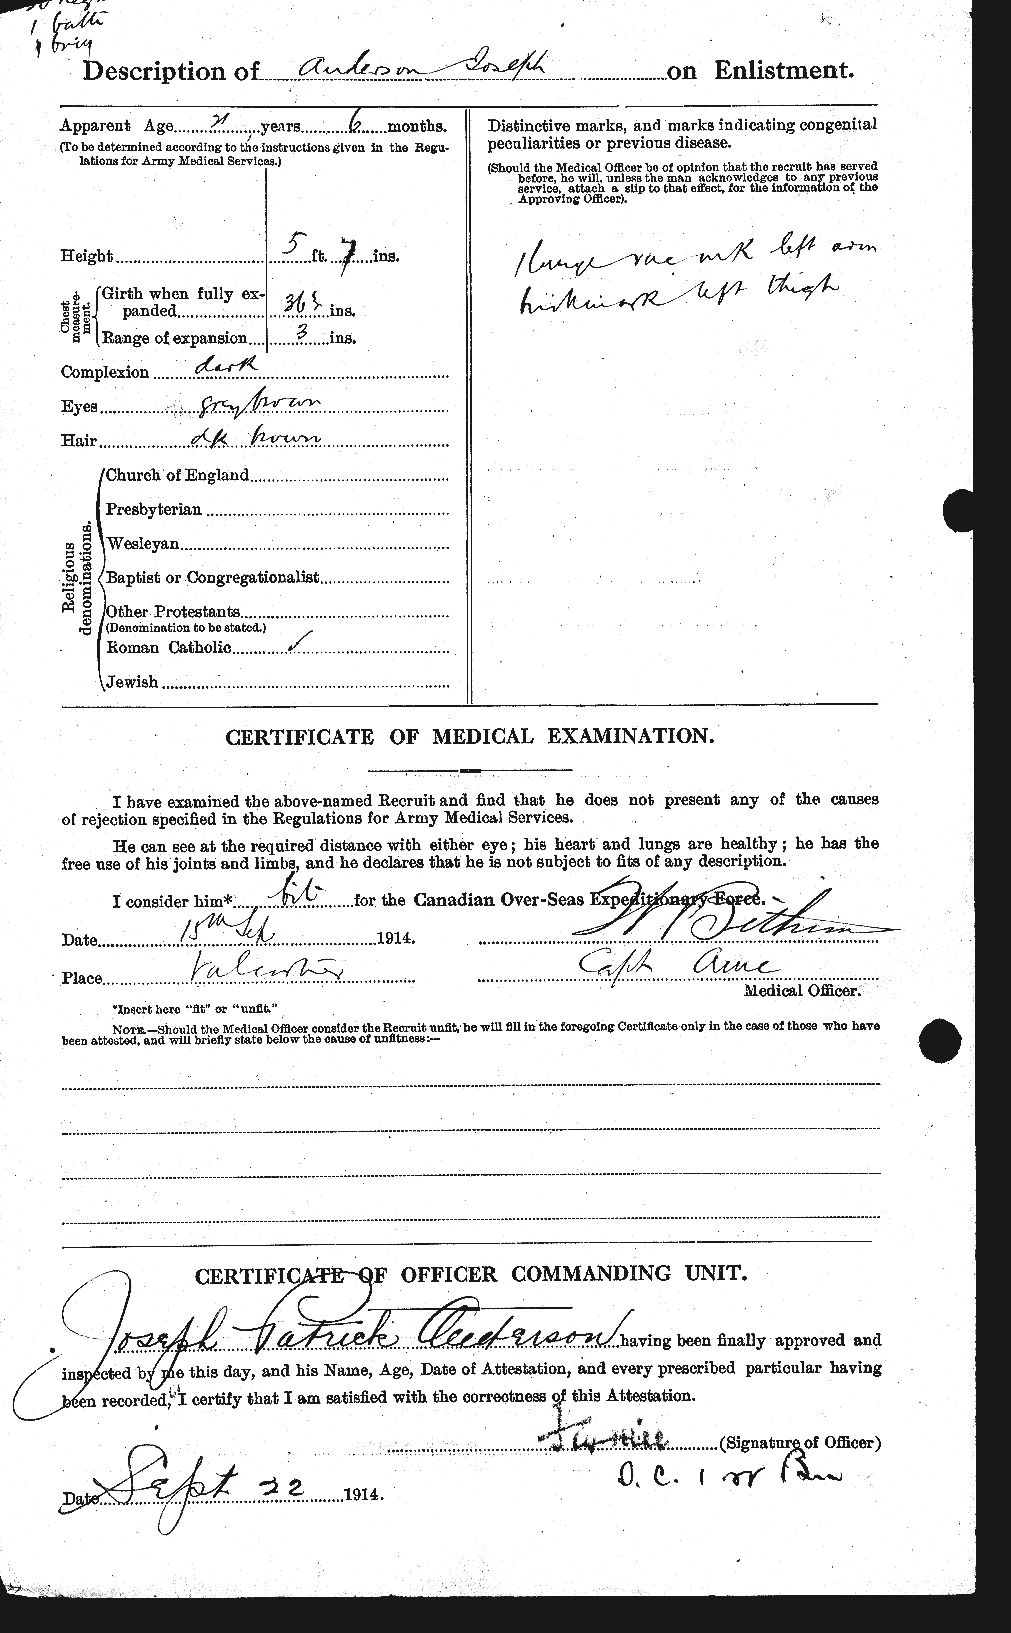 1 batt
1 brig
Description of Anderson Joseph on Enlistment.
Apparent Age 21 years 6 months.
(To be determined according to the instructions given in the Regu-
lations for Army Medical Services.)
Height 5 ft. 7 ins.
Chest measure-ment.
Girth when fully ex-
panded 36½ ins.
Range of expansion 3 ins.
Complexion dark
Eyes grey brown
Hair dk brown
Religious denominations.
Church of England
Presbyterian
Wesleyan
Baptist or Congregationalist
Other Protestants
(Denomination to be stated.)
Roman Catholic ✓
Jewish
Distinctive marks, and marks indicating congenital
peculiarities or previous disease.
(Should the Medical Officer be of opinion that the recruit has served
before, he will, unless the man acknowledges to any previous
service, attach a slip to that effect, for the information of the
Approving Officer).
1 large vac mk left arm
birthmark left thigh
CERTIFICATE OF MEDICAL EXAMINATION.
I have examined the above-named Recruit and find that he does not present any of the causes
of rejection specified in the Regulations for Army Medical Services.
He can see at the required distance with either eye; his heart and lungs are healthy; he has the
free use of his joints and limbs, and he declares that he is not subject to fits of any description.
I consider him* fit for the Canadian Over-Seas Expeditionary Force.
Date 15th Sep 1914.
Place Valcartier
Capt AMC
Medical Officer.
*Insert here "fit" or "unfit."
NOTE.—Should the Medical Officer consider the Recruit unfit, he will fill in the foregoing Certificate only in the case of those who have
been attested, and will briefly state below the cause of unfitness:—
CERTIFICATE OF OFFICER COMMANDING UNIT.
Joseph Patrick Anderson having been finally approved and
inspected by me this day, and his Name, Age, Date of Attestation, and every prescribed particular having
been recorded, I certify that I am satisfied with the correctness of this Attestation.
(Signature of Officer)
O. C. 1
Date Sept 22 1914.